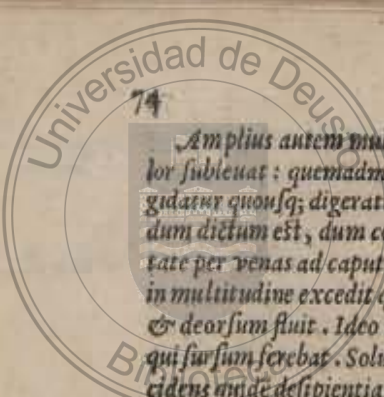 Universidad de Deusto
74
Amplius autem mul
lor subleuat : quemadm
gidatur quousq; digerat
dum dictum est, dum c
tate per venas ad caput
in multitudine excedit
& deorsum fluit . Ideo
qui sursum ferebat . Solu
cidens quidē desipientia